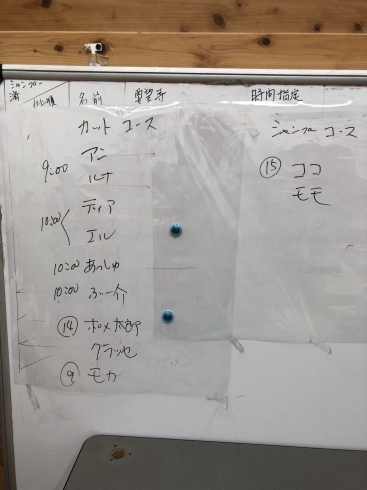 シャンプー
済
名前
要望等
時間指定
カットコース
9:00 アン
ルナ
10:00 ティア
エル
10:00 あっしゅ
10:00 ぶー介
⑭ ポメ太郎
グラッセ
⑨ モカ
シャンプーコース
⑮ ココ
モモ